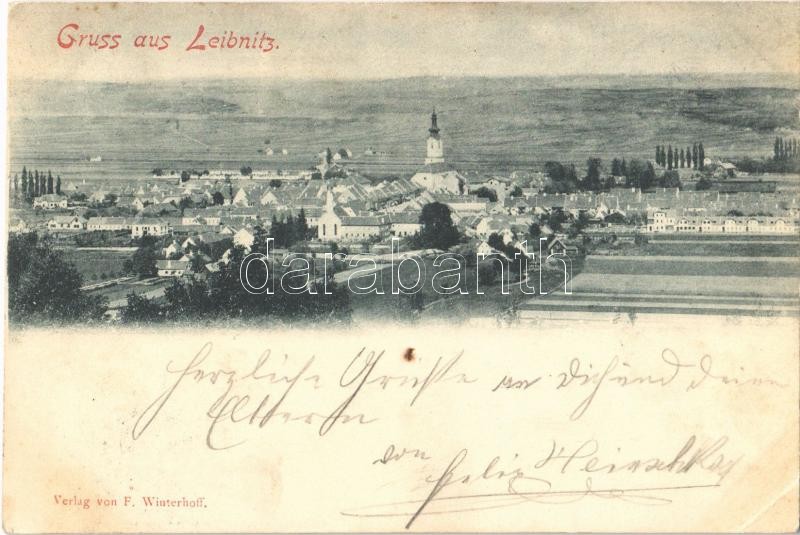 Gruss aus Leibnitz.
darabanth
Herzliche Grüße an Dich und Deine
Eltern
von
Felix
Verlag von F. Winterhoff.